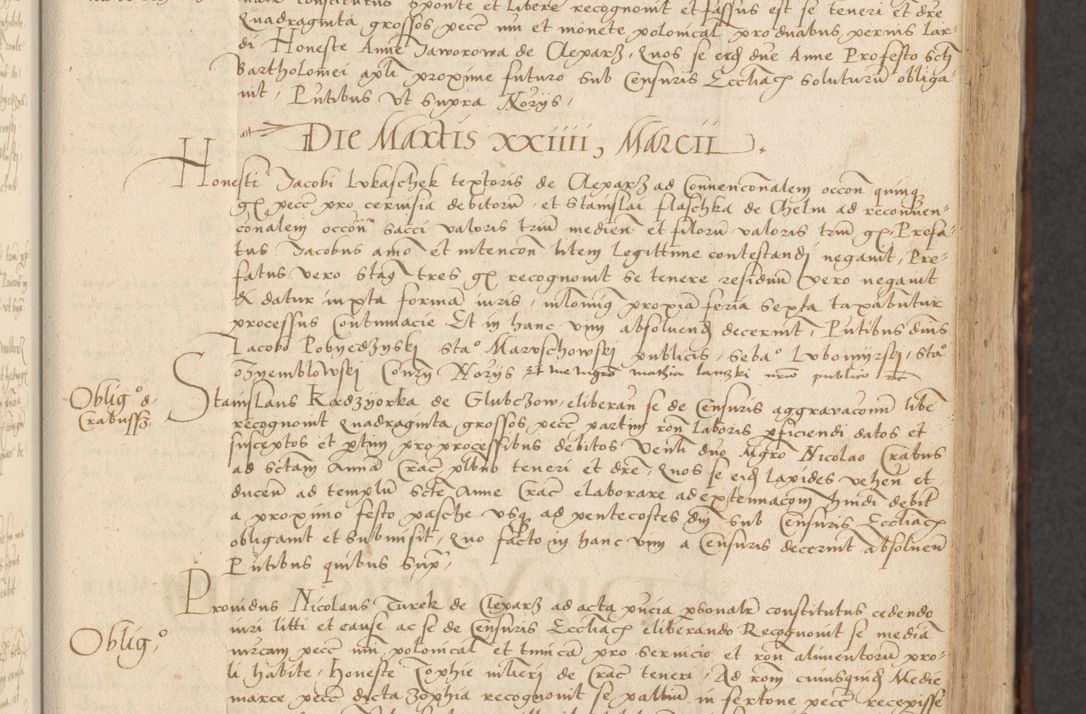 constitutus sponte et libere recognovit et fassus est se teneri et dre
Quadraginta grossos pecc nu et monete polonical pro duabus pernis lar-
di Honeste Anne Jaworowa de Cleparz, Quos se eid dne Anne Profesto Scti
Bartholomei apli proxime futuro sub Censuris Eccliac soluturu obliga-
vit, Pntibus ut supra Norijs,
DIE MARTIS XXIIII, MARCII.
Honesti Jacobi Lukaschek textoris de Cleparz ad Convenconalem occon quinq
gr pecc pro cervisia debitoru, et Stanislai flaschka de Chelm ad reconven-
conalem occon sacci valoris triu medien et filoru valoris triu gr, Prefa-
tus Jacobus amo et intencon litem legittime contestandj negavit, Pre-
fatus vero Stas tres gr recognovit se tenere residuu vero negavit
& datur iuxta forma iuris, proxia feria sexta taxabuntur
processus Contumacie Et in hanc vim absolvend decernit, Pntibus dnis
Jacobo Pobyedzynskj Sta° Maruschowskj publicis, Seba° Lubomijrskj, Sta°
Ozyemblowskj Consry Norijs et me mgro mathia lanzki nrio publico
Oblig° d.
Crabussz
Stanislaus Kadzyorka de Glubczow, eliberan se de Censuris aggravacomu libe
recognovit Quadraginta grossos pecc partim ron laboris pficiendi datos et
susceptos et ptim pro processibus debitos Venli dno Mgro Nicolao Crabus
ad Sctam Anna Crac plbno teneri et dre, Quos se eid lapides vehen et
ducen ad templu Scte Anne Crac elaborare ad extenuacom hmdi debit
a proximo festo pasche usq ad pentecostes dnj sub Censuris Eccliac
obligavit et submisit, Quo facto in hanc vim a Censuris decernit absolven
Pntibus quibus sup,
Oblig°,
Providus Nicolaus Turek de Cleparz ad acta pncia psonalr constitutus cedendo
iuri litti et cause ac se de Censuris Eccliac eliberando Recognovit se media
mrcam pecc nu polonical et tunica pro servicio et ron alimentoru pro-
li habite, Honeste Zophie mlieri de Crac teneri, Ad rom cuiusquid Medie
marce pecc dicta Zophia recognovit se palliu in sertone pecc recepisse